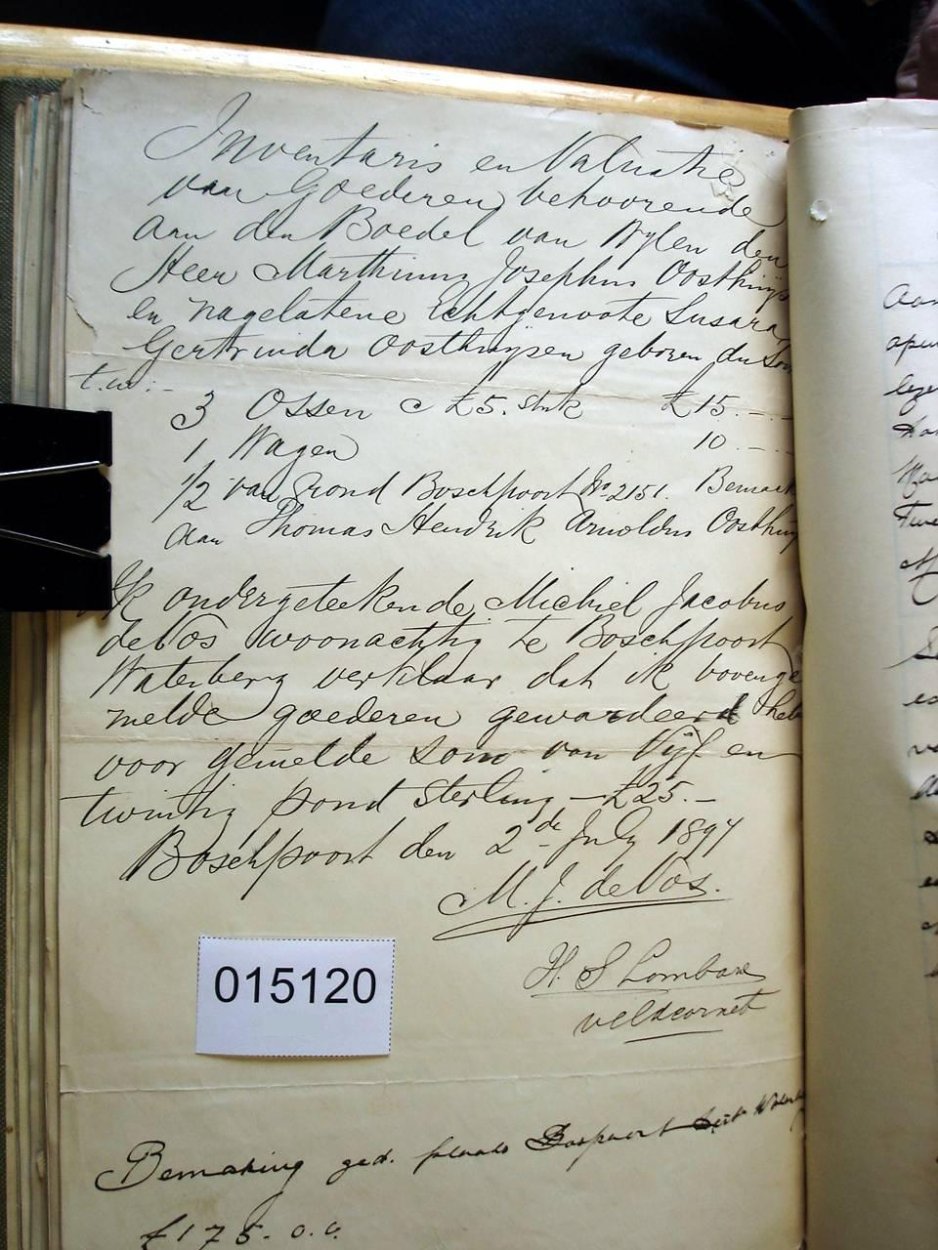 Inventaris en Valuatie
van Goederen behoorende
aan den Boedel van Wylen den
Heer Marthinus Josephus Oosthuys
en nagelatene Echtgenoote Susara
Gertruida Oosthuysen geboren du
t.w.:-
3 Ossen @ £5. stuk £15.--
1 Wagen 10.--
1/2 van grond Boschpoort No. 2151. Bemaak
aan Thomas Hendrik Arnoldus Oosthuy
Ik ondergeteekende, Michiel Jacobus
de Vos woonachtig te Boschpoort
Waterberg verklaar dat ik bovenge
melde goederen gewardeerd heb
voor gemelde som van Vijf en
twintig pond sterling - £25.-
Boschpoort den 2de July 1897
M. J. de Vos.
H. S Lombard
veldcornet
015120
Bemaking ged. plaats Bospoort
£175.0.0.
Aan